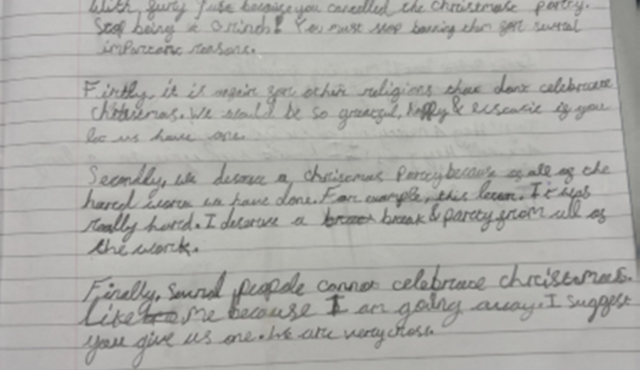 With fury fuse because you cancelled the Christmas party.
Stop being a Grinch! You must stop banning than for several
important reasons.
Firstly, it is again for other religions that dont celebrate
christmas. We would be so grateful, happy & ecstatic if you
let us have one.
Secondly, we deserve a christmas party because of all of the
hard work we have done. For example, this lesson. It was
really hard. I deserve a break & party from all of
the work.
Finally, several people cannot celebrate christmas.
Like me because I am going away. I suggest
you give us one. We are very cross.